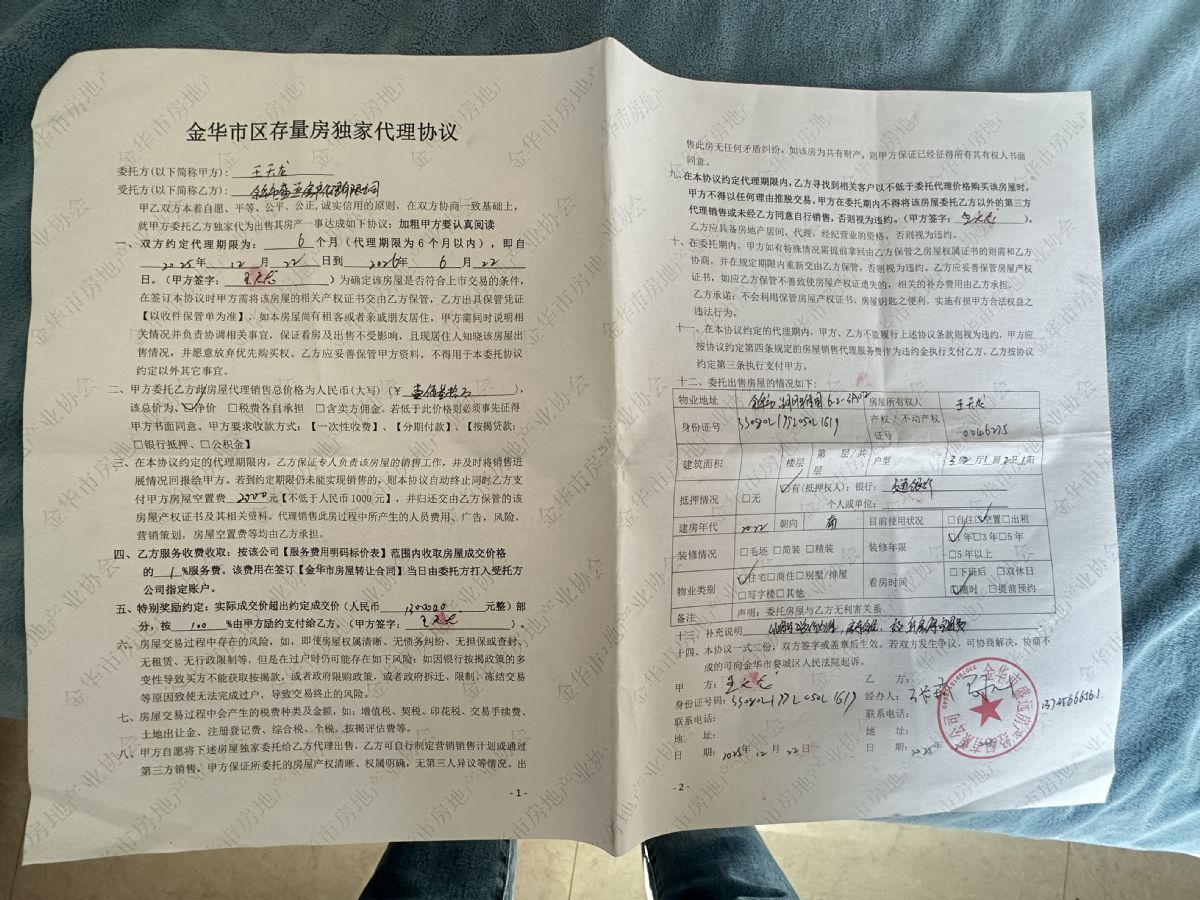 金华市区存量房独家代理协议
委托方(以下简称甲方): 王天龙
受托方(以下简称乙方):
甲乙双方本着自愿、平等、公平、公正,诚实信用的原则,在双方协商一致基础上,
就甲方委托乙方独家代为出售其房产一事达成如下协议:加粗甲方要认真阅读
一、双方约定代理期限为: 6 个月(代理期限为6个月以内),即自
2025年 12 月 22 日到 2026年 6 月 22
日。(甲方签字: 王天龙 )为确定该房屋是否符合上市交易的条件,
在签订本协议时甲方需将该房屋的相关产权证书交由乙方保管,乙方出具保管凭证
【以收件保管单为准】,如本房屋尚有租客或者亲戚朋友居住,甲方需同时说明相
关情况并负责协调相关事宜,保证看房及出售不受影响,且现居住人知晓该房屋出
售情况,并愿意放弃优先购买权。乙方应妥善保管甲方资料,不得用于本委托协议
约定以外其它事宜。
二、甲方委托乙方此房屋代理销售总价格为人民币(大写)(¥ ),
该总价为、☑净价 □税费各自承担 □含卖方佣金。若低于此价格则必须事先征得
甲方书面同意。甲方要求收款方式:【一次性收费】、【分期付款】、【按揭贷款:
□银行抵押、□公积金】
三、在本协议约定的代理期限内,乙方保证专人负责该房屋的销售工作,并及时将销售进
展情况回报给甲方。若到约定期限仍未能实现销售的,则本协议自动终止同时乙方支
付甲方房屋空置费 2000 元【不低于人民币1000元】,并归还交由乙方保管的该
房屋产权证书及其相关资料。代理销售此房过程中所产生的人员费用、广告,风险,
营销策划,房屋空置费等均由乙方承担。
四、乙方服务收费收取:按该公司【服务费用明码标价表】范围内收取房屋成交价格
的 1 %服务费。该费用在签订【金华市房屋转让合同】当日由委托方打入受托方
公司指定账户。
五、特别奖励约定:实际成交价超出约定成交价(人民币 1302000 元整)部
分,按 100 %由甲方励约支付给乙方。(甲方签字: 王天龙 )。
六、房屋交易过程中存在的风险,如,即使房屋权属清晰、无债务纠纷、无担保或查封、
无租赁、无行政限制等,但是在过户时仍可能存在如下风险:如因银行按揭政策的多
变性导致买方不能获取按揭款,或者政府限购政策,或者政府拆迁、限制、冻结交易
等原因致使无法完成过户,导致交易终止的风险。
七、房屋交易过程中会产生的税费种类及金额,如:增值税、契税、印花税、交易手续费、
土地出让金、注册登记费、综合税、个税、按揭评估费等。
八、甲方自愿将下述房屋独家委托给乙方代理出售,乙方可自行制定营销销售计划或通过
第三方销售,甲方保证所委托的房屋产权清晰、权属明确,无第三人异议等情况。出
- 1 -
售此房无任何矛盾纠纷,如该房为共有财产,则甲方保证已经征得所有其有权人书面
同意。
九、在本协议约定代理期限内,乙方寻找到相关客户以不低于委托代理价格购买该房屋时,
甲方不得以任何理由推脱交易。甲方在委托期内不得将该房屋委托乙方以外的第三方
代理销售或未经乙方同意自行销售,否则视为违约。(甲方签字: 王天龙 )。
乙方应具备房地产居间,代理、经纪营业的资格,否则视为违约。
十、在委托期内,甲方如有特殊情况需提前拿回由乙方保管之房屋权属证书的则需和乙方
协商,并在规定期限内重新交由乙方保管,否则视为违约。乙方应妥善保管房屋产权
证书,如应乙方保管不善致使房屋产权证遗失的,相关的补办费用由乙方承担。
乙方承诺:不会利用保管房屋产权证书、房屋钥匙之便利,实施有损甲方合法权益之
违法行为。
十一、在本协议约定的代理期内,甲方、乙方不能履行上述协议条款则视为违约,甲方应
按协议约定第四条规定的房屋销售代理服务费作为违约金执行支付乙方。乙方按协议
约定第三条执行支付甲方。
十二、委托出售房屋的情况如下:
物业地址 房屋所有权人 王天龙
身份证号 产权/不动产权证号 0046275
建筑面积 楼层 第 层/共 层 户型 3房2厅1厨2卫1阳
抵押情况 □无 ☑有(抵押权人):银行: 交通银行
个人或单位:
建房年代 2022 朝向 南 目前使用状况 □自住☑空置□出租
装修情况 □毛坯 □简装 □精装 装修年限 ☑1年□3年□5年
□5年以上
物业类别 ☑住宅□商住□别墅/排屋 □写字楼□其他 看房时间 □下班后 □双休日
☑随时 □提前预约
备注 声明:委托房屋与乙方无利害关系
十三、补充说明
十四、本协议一式二份,双方签字或盖章后生效。若双方发生争议,可协商解决,协商不
成的可向金华市婺城区人民法院起诉。
甲 方: 王天龙 乙 方:
身份证号码: 经办人:
联系电话: 联系电话: 13725666261
地 址: 地 址:
日 期: 2025年 12月 22日 日 期: 2025年
- 2 -